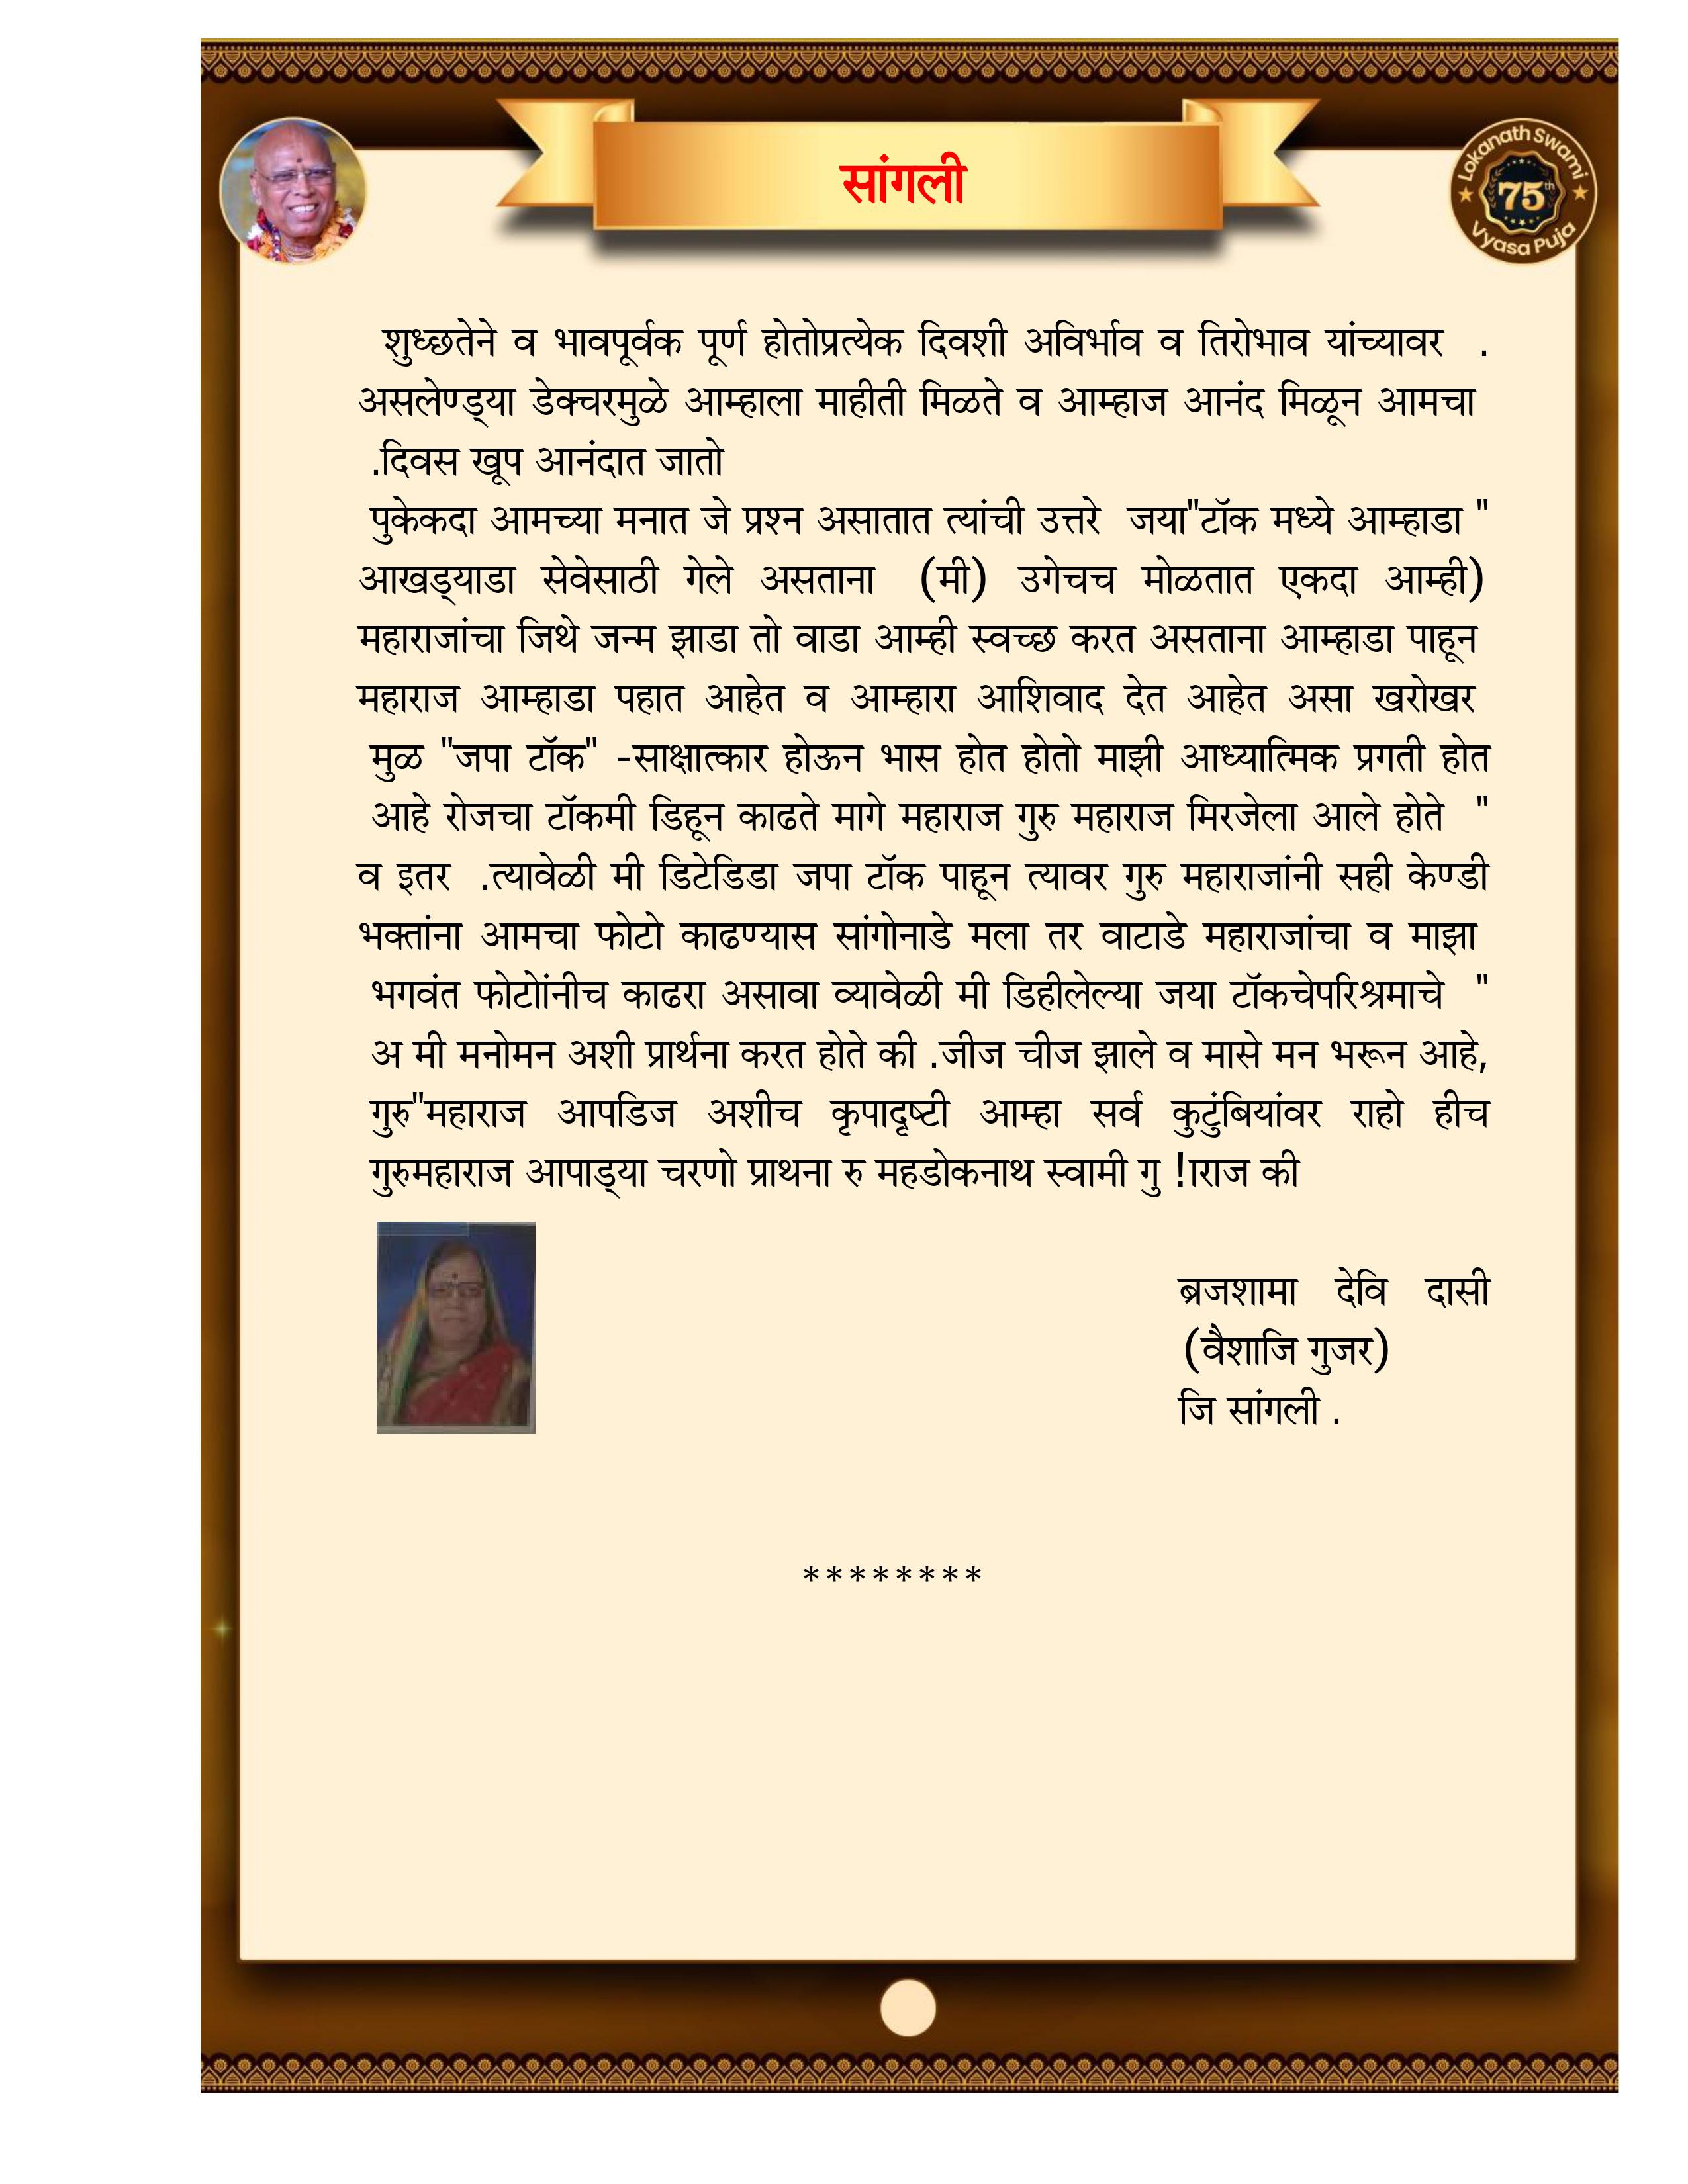 सांगली
Lokanath Swami
75th
Vyasa Puja
शुध्छतेने व भावपूर्वक पूर्ण होतोप्रत्येक दिवशी अविर्भाव व तिरोभाव यांच्यावर .
असलेण्ड्या डेक्चरमुळे आम्हाला माहीती मिळते व आम्हाज आनंद मिळून आमचा
.दिवस खूप आनंदात जातो
पुकेकदा आमच्या मनात जे प्रश्न असातात त्यांची उत्तरे जया"टॉक मध्ये आम्हाडा "
आखड्याडा सेवेसाठी गेले असताना (मी) उगेचच मोळतात एकदा आम्ही)
महाराजांचा जिथे जन्म झाडा तो वाडा आम्ही स्वच्छ करत असताना आम्हाडा पाहून
महाराज आम्हाडा पहात आहेत व आम्हारा आशिवाद देत आहेत असा खरोखर
मुळ "जपा टॉक" -साक्षात्कार होऊन भास होत होतो माझी आध्यात्मिक प्रगती होत
आहे रोजचा टॉकमी डिहून काढते मागे महाराज गुरु महाराज मिरजेला आले होते "
व इतर .त्यावेळी मी डिटेडिडा जपा टॉक पाहून त्यावर गुरु महाराजांनी सही केण्डी
भक्तांना आमचा फोटो काढण्यास सांगोनाडे मला तर वाटाडे महाराजांचा व माझा
भगवंत फोटोांनीच काढरा असावा व्यावेळी मी डिहीलेल्या जया टॉकचेपरिश्रमाचे "
अ मी मनोमन अशी प्रार्थना करत होते की .जीज चीज झाले व मासे मन भरून आहे,
गुरु"महाराज आपडिज अशीच कृपादृष्टी आम्हा सर्व कुटुंबियांवर राहो हीच
गुरुमहाराज आपाड्या चरणो प्राथना रु महडोकनाथ स्वामी गु !ाराज की
ब्रजशामा देवि दासी
(वैशाजि गुजर)
जि सांगली .
********